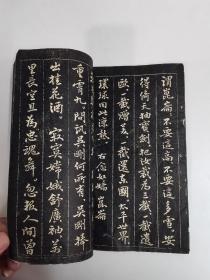 谓崑崙不要這高不要這多雪安
得倚天抽寶劍把汝裁為三截一截遺
歐一截贈美一截還東國太平世界
環球同此涼熱 右念奴嬌崑崙
重霄九問訊吳剛何所有吳剛捧
出桂花酒 寂寞嫦娥舒廣袖萬
里長空且為忠魂舞忽报人間曾